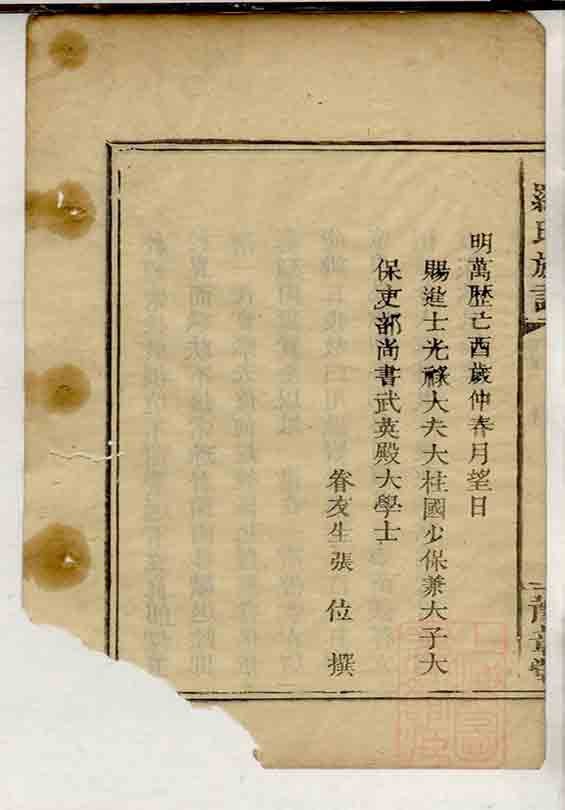 羅氏族譜
明萬歴己酉歲仲春月望日
賜進士光祿大夫大柱國少保兼太子大
保吏部尚書武英殿大學士
眷友生張位撰
豫章堂